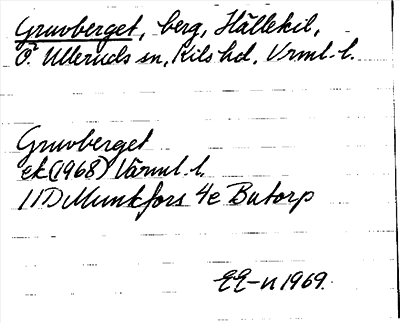 Gruvberget, berg, Hällekil,
Ö. Ulleruds sn, Kils hd, Vrml. l.
Gruvberget
ek (1968) Värml. l.
11D Munkfors 4e Butorp
EE-n 1969.